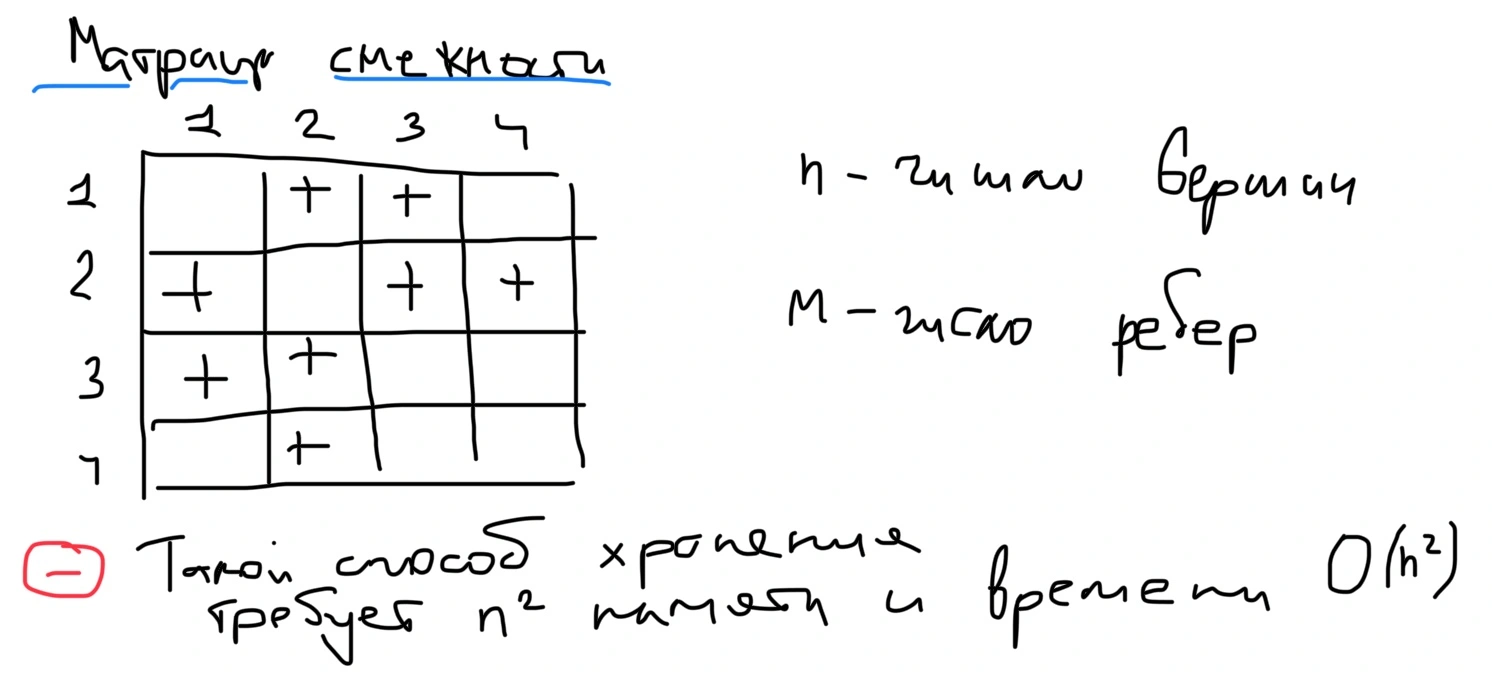 Матрица смежности
1 2 3 4
1 + +
2 + + +
3 + +
4 +
n - число вершин
M - число ребер
− Такой способ хранения
требует n² памяти и времени O(n²)